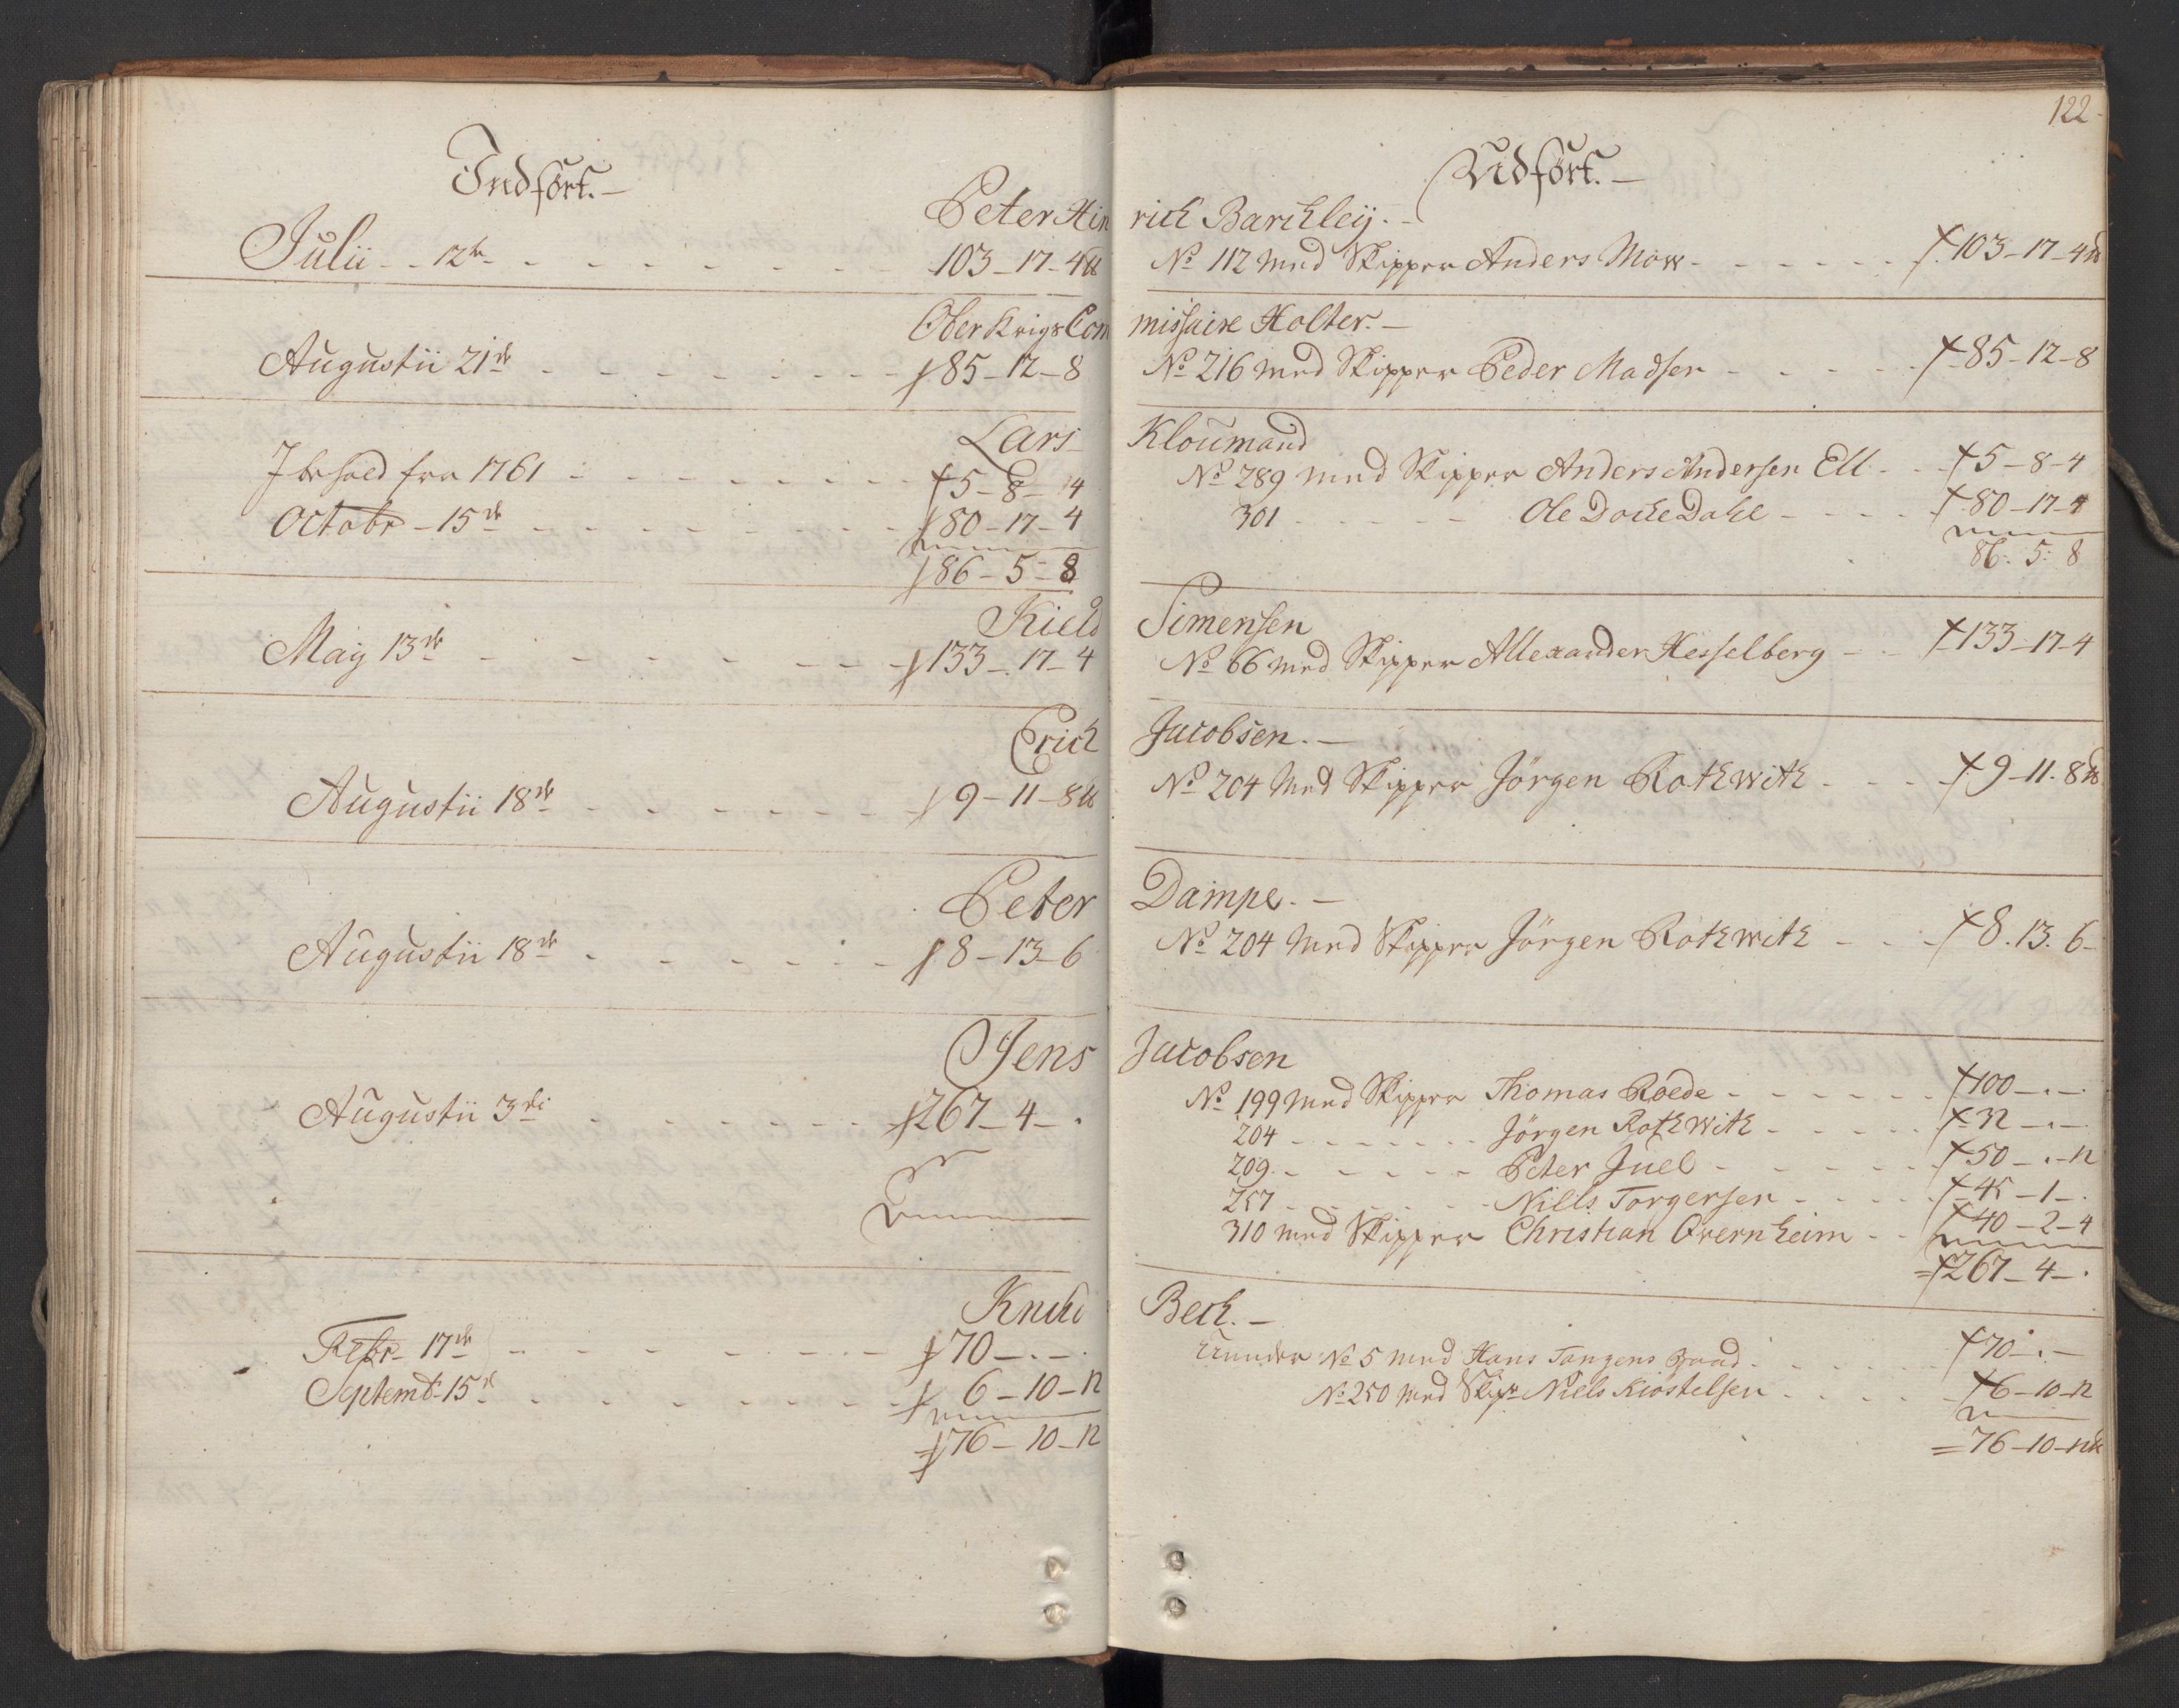 Indført.
Peter Hin
Julii 12te 103-17-4 ℔
Ober Krigs Com
Augustii 21de 85-12-8
Lars
I behold fra 1761 5-8-4
Octobr 15de 80-17-4
86-5-8
Kield
May 13de 133-17-4
Erich
Augustii 18de 9-11-8 ℔
Peter
Augustii 18de 8-13-6
Jens
Augustii 3di 267-4-.
Knud
Febr 17de 70-.-.
Septembr 15de 6-10-12
76-10-12
122
Udført.
rich Barchleÿ.
No 112 med Skipper Anders Mow 103-17-4 ℔
missaire Holter.
No 216 med Skipper Peder Madsen 85-12-8
Kloumand
No 289 med Skipper Anders Andersen Ell 5-8-4
301 Ole Docke Dahl 80-17-4
86: 5: 8
Simensen
No 66 med Skipper Allexander Hesselberg 133-17-4
Jacobsen.
No 204 med Skipper Jörgen Rothwith 9-11-8 ℔
Dampe.
No 204 med Skipper Jörgen Rothwith 8.13.6
Jacobsen
No 199 med Skipper Thomas Roede 100-.-.
204 Jörgen Rothwith 32-.-.
209 Peter Juel 50-.-12
257 Niels Torgersen 45-1-.
310 med Skipper Christian Overnheim 40-2-4
267-4-.
Bech.
Under No 5 med Hans Tangens Baad 70-.-
No 250 med Skipr Niels Kiöstelsen 6-10-12
76-10-12 ℔